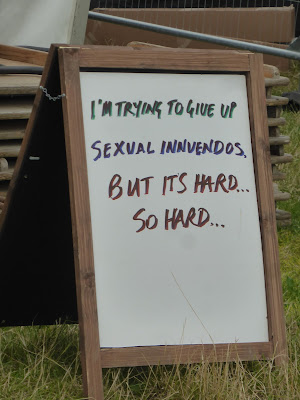 I'M TRYING TO GIVE UP
SEXUAL INNVENDOS,
BUT IT'S HARD...
SO HARD...